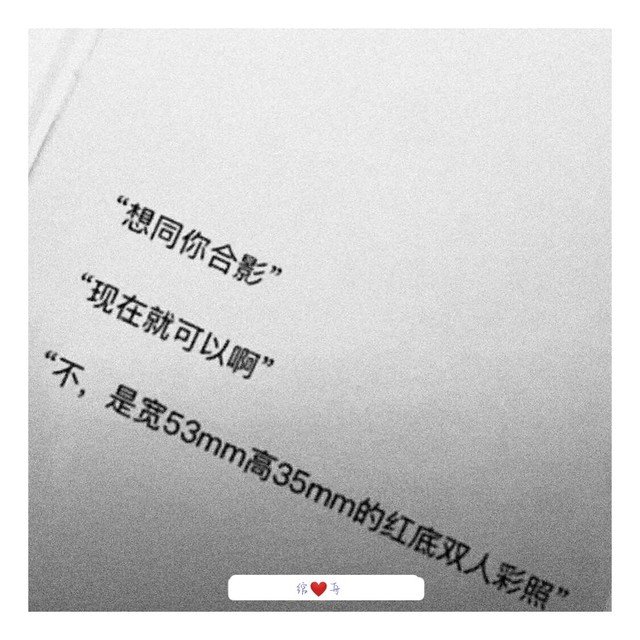 “想同你合影”
“现在就可以啊”
“不，是宽53mm高35mm的红底双人彩照”
绾❤️哥